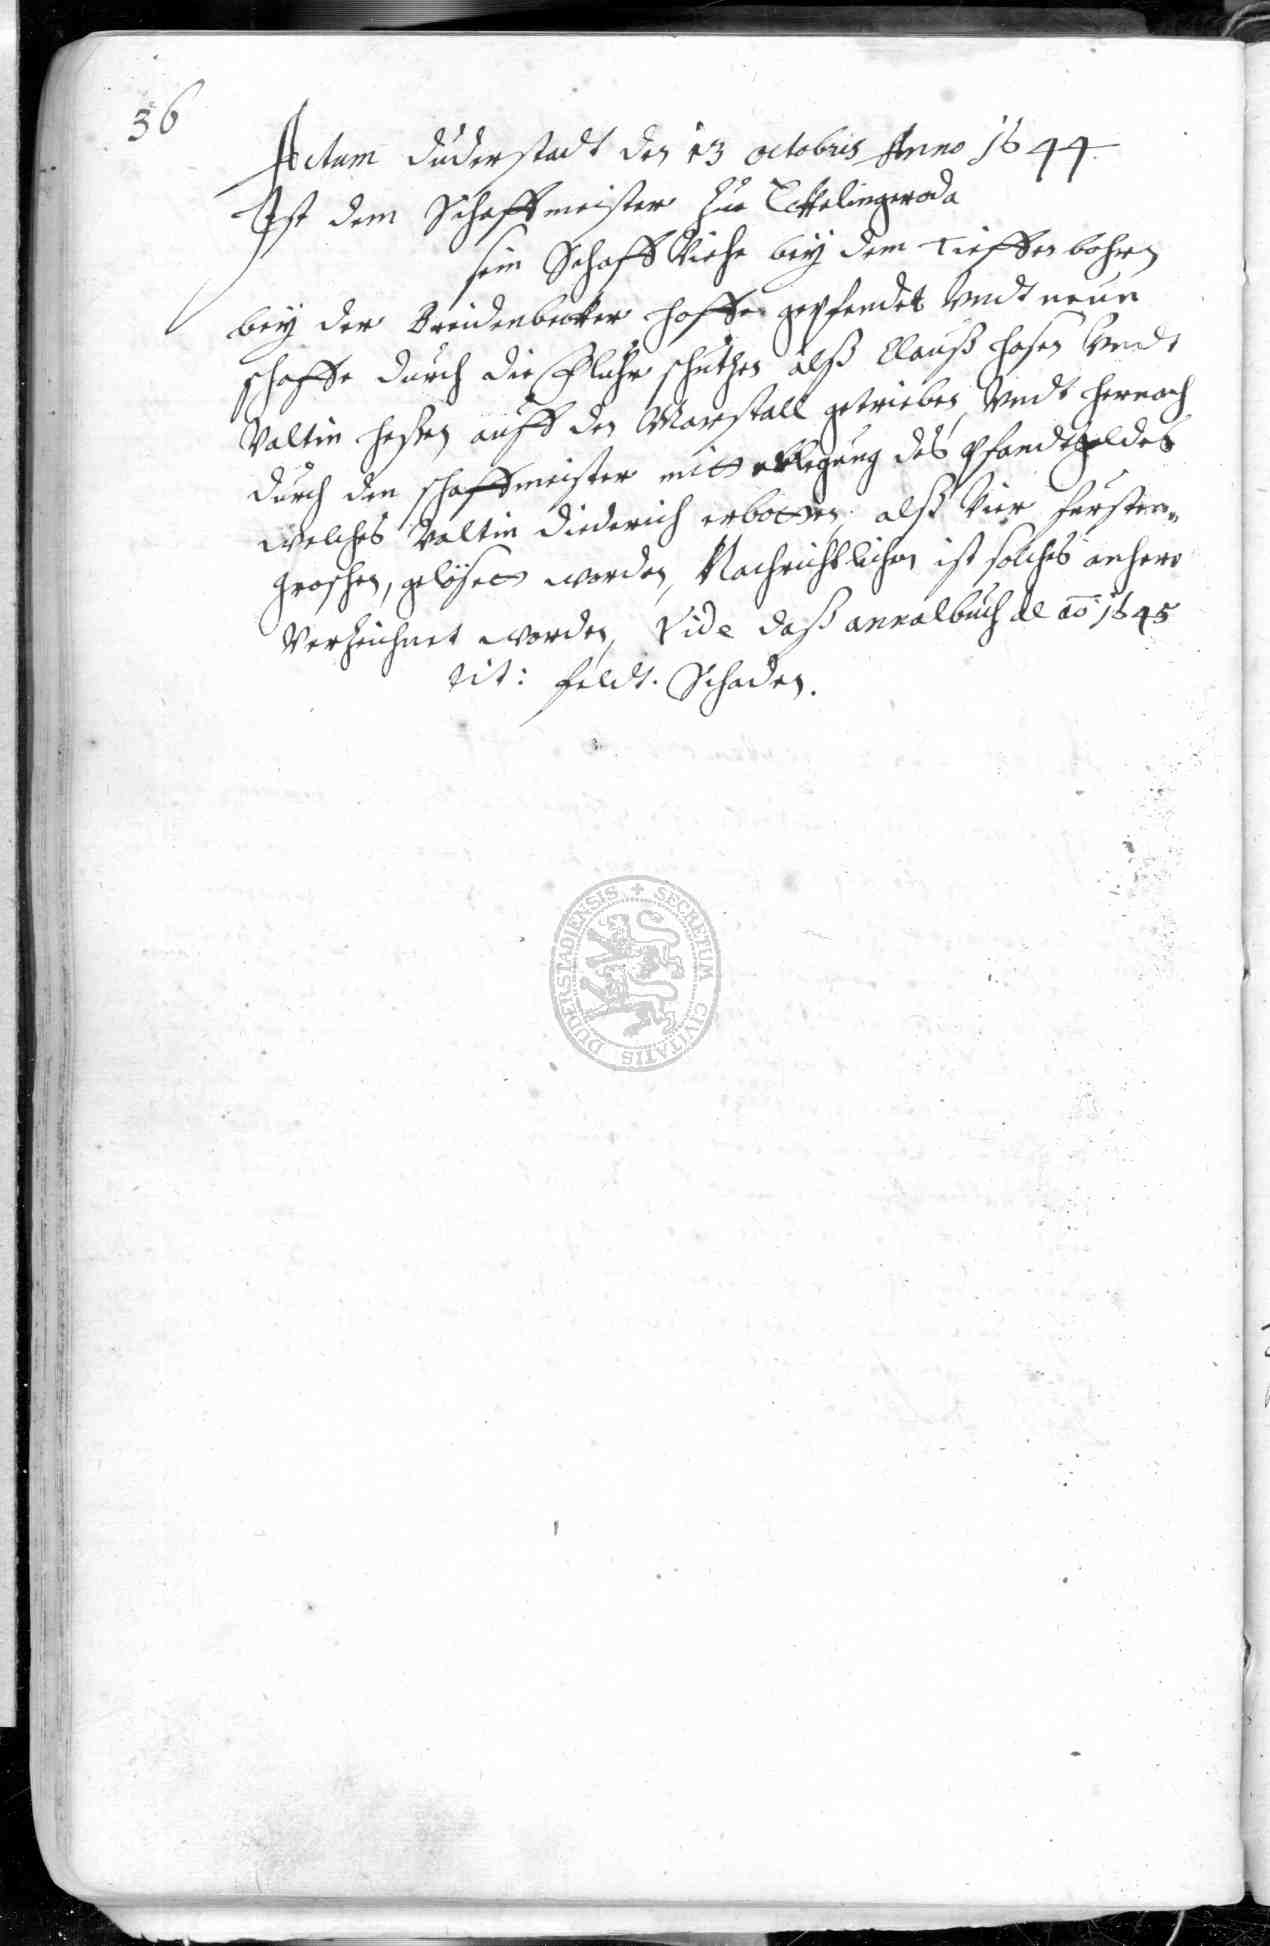 36
Actum Duderstadt den 13 octobris Anno 1644.
Ist dem Schaffmeister zue Tettelingeroda
sein Schaff Viehe beÿ dem tieffen bohren
beÿ der Breidenbecker hoffe gepfendet Vndt neun
schaffe durch die Fluhrschützen alß Clauß hasen Vndt
Valtin hessen auff den Marstall getrieben, Vndt hernach
durch den schaffmeister mitt erlegung des pfandtgeldes
welches Valtin Diederich erbotten, alß Vier fürsten-
groschen, gelösett worden, Nachrichtlichen ist solches anhero
Verzeichnet worden, Vide daß annalbuch de ao 1645
tit: feldt. Schaden.
SECRETUM CIVITATIS DUDERSTADIENSIS